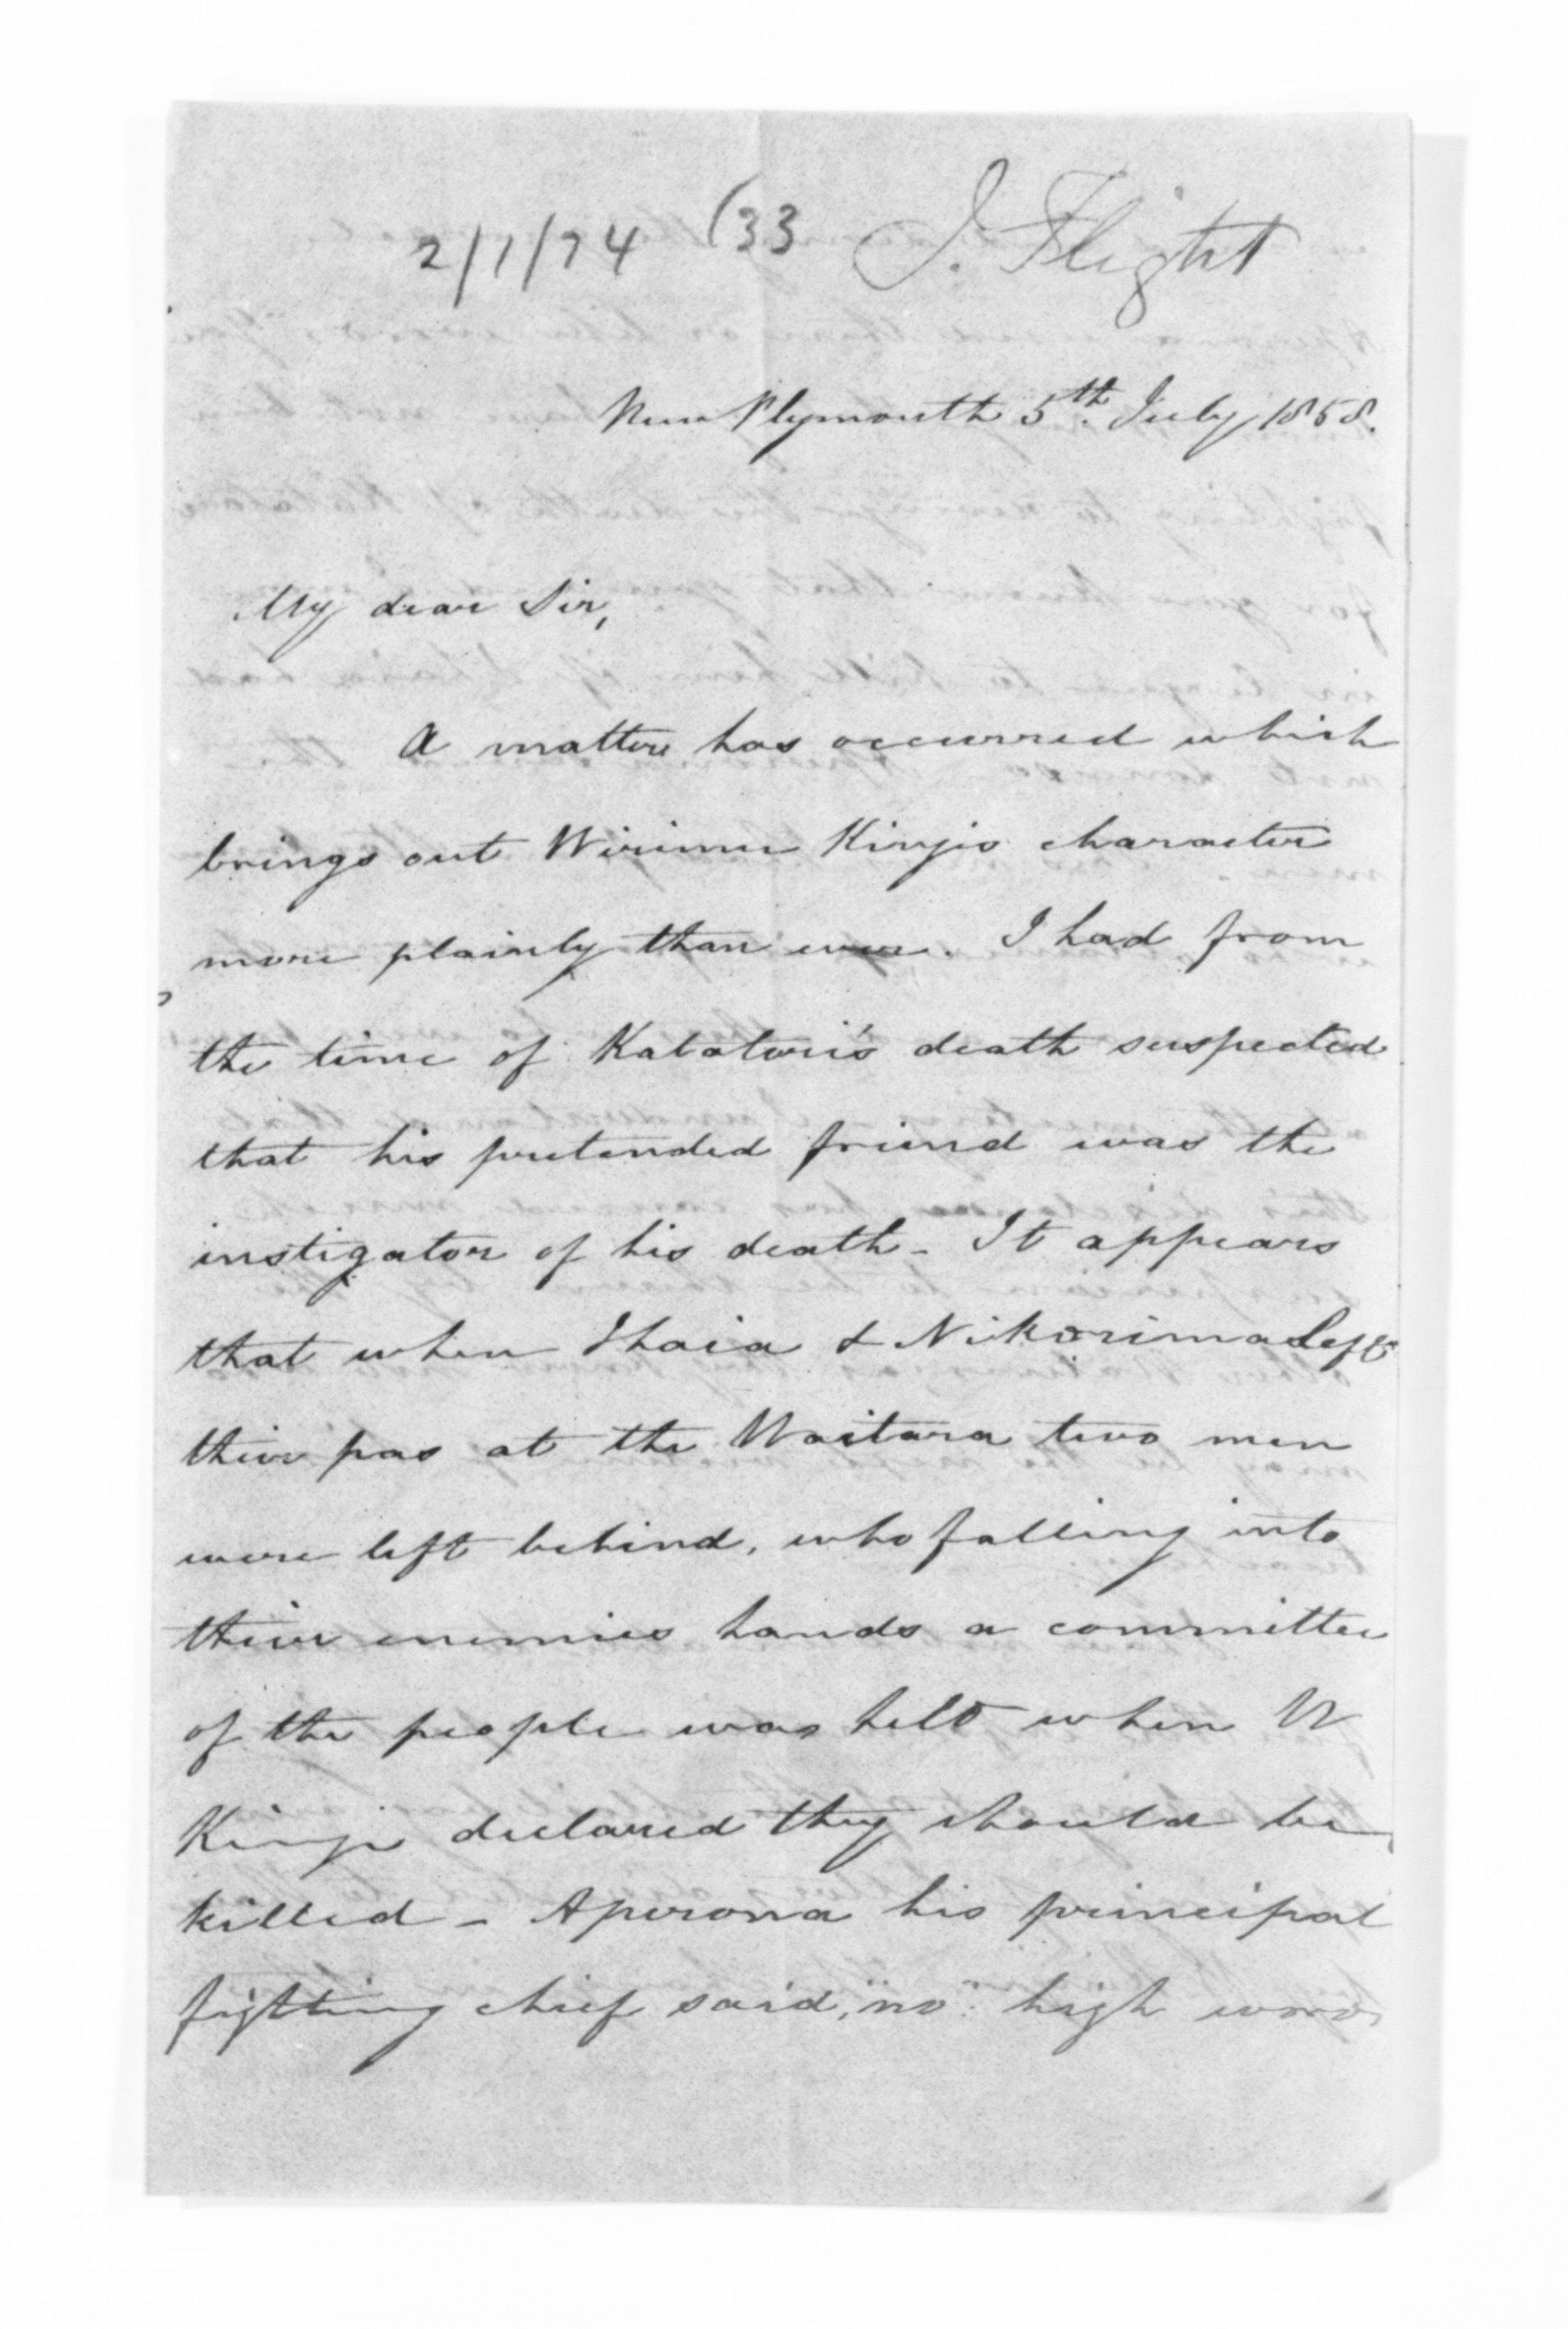 2/1/74 (33 J. Flight
New Plymouth 5th. July 1858.
My dear Sir,
A matter has occurred which
brings out Wirimu Kingis character
more plainly than ever. I had from
the time of Katatori's death suspected
that his pretended friend was the
instigator of his death - It appears
that when Ihaia & Nikorima left
their pas at the Waitara two men
were left behind, who falling into
their enemies hands a committee
of the people was held when W
Kingi declared they should be
killed - Aperona his principal
fighting chief said, "no" high words